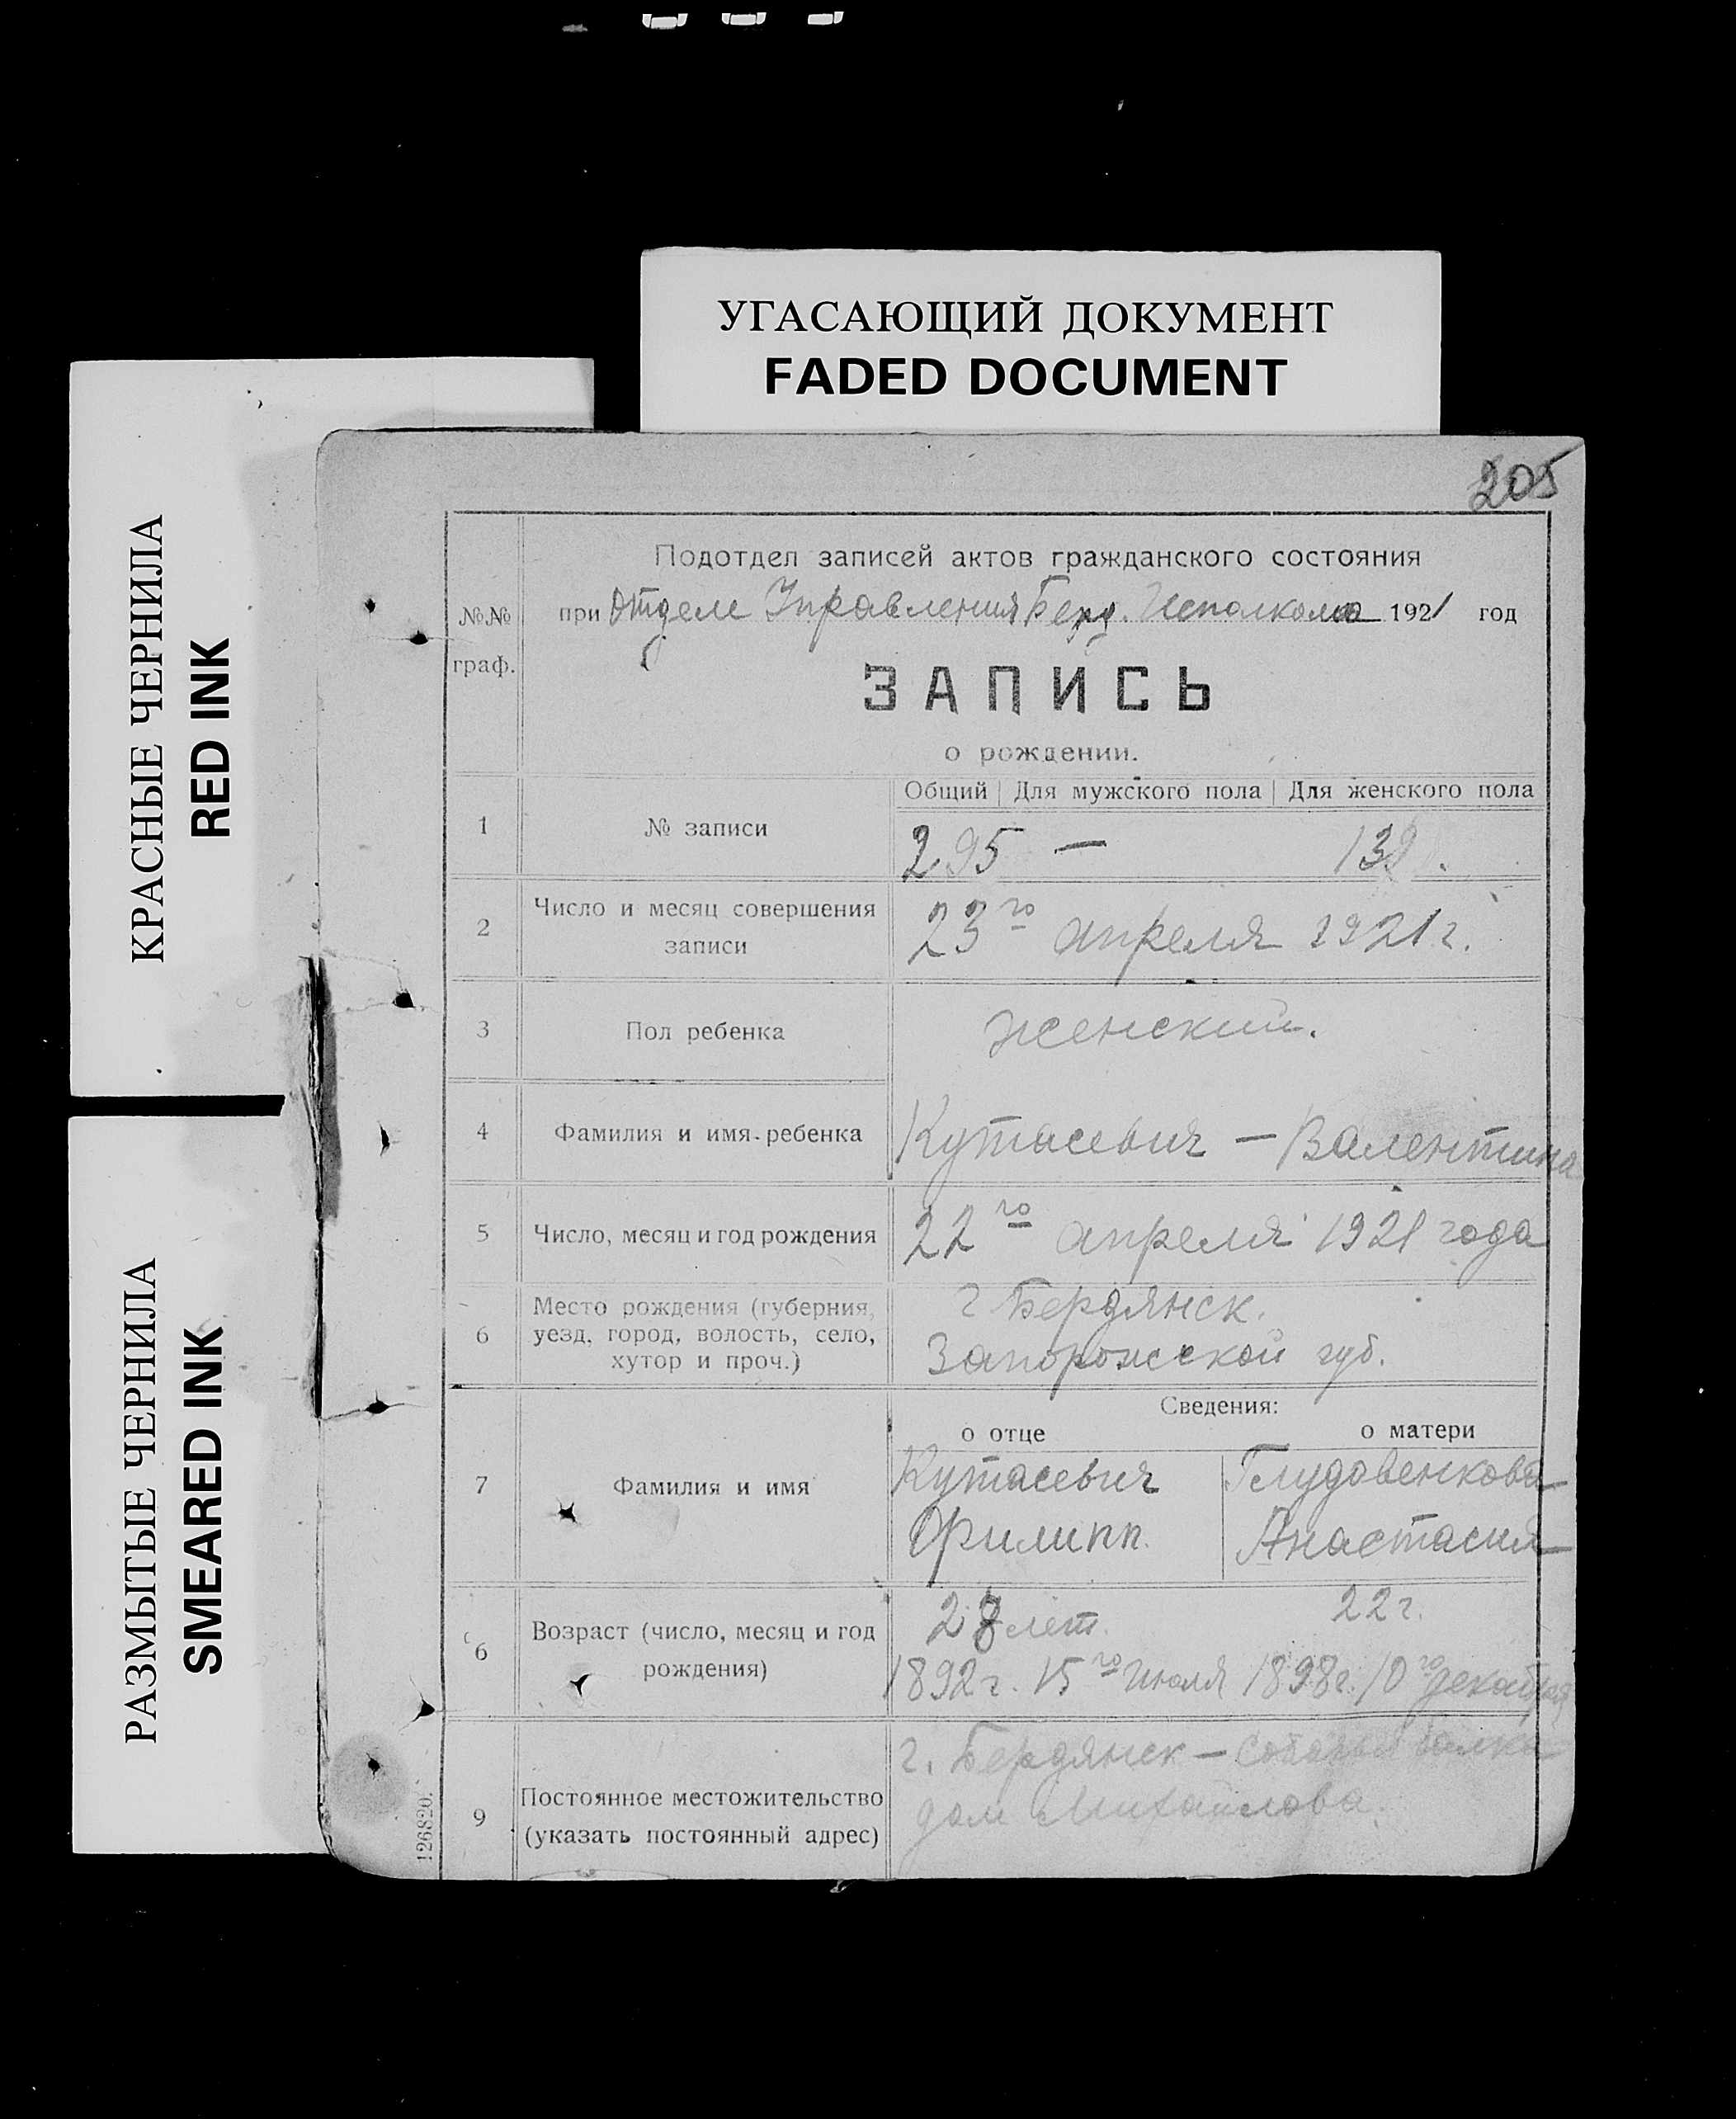 УГАСАЮЩИЙ ДОКУМЕНТ
FADED DOCUMENT
КРАСНЫЕ ЧЕРНИЛА
RED INK
РАЗМЫТЫЕ ЧЕРНИЛА
SMEARED INK
205
№№ граф.
Подотдел записей актов гражданского состояния
при Отделе Управления Берд. Исполкома 1921 год
ЗАПИСЬ
о рождении.
Общий Для мужского пола Для женского пола
1 № записи 295 — 139.
2 Число и месяц совершения
записи 23го апреля 1921 г.
3 Пол ребенка женский.
4 Фамилия и имя ребенка Кутасевич — Валентина
5 Число, месяц и год рождения 22го апреля 1921 года
6 Место рождения (губерния, г Бердянск.
уезд, город, волость, село,
хутор и проч.) Запорожской губ.
Сведения:
о отце о матери
7 Фамилия и имя Кутасевич Глудовенкова
Филипп. Анастасия
6 Возраст (число, месяц и год 28 лет. 22 г.
рождения) 1892 г. 15го июля 1898 г. 10го декабря
9 Постоянное местожительство г. Бердянск — балка
(указать постоянный адрес) дом Михайлова.
126820.